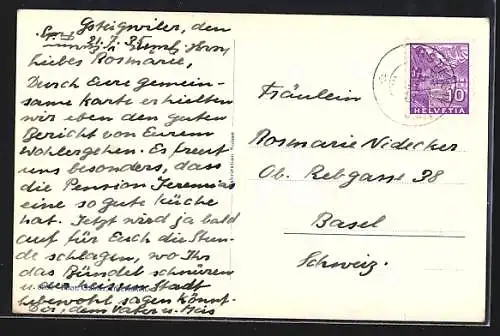 Gsteigwiler, den
21.7.35
Liebes Rosmarie,
Durch Eure gemein-
same Karte erhielten
wir eben den guten
Bericht von Eurem
Wohlergehen. Es freut
uns besonders, dass
die Pension Jeremias
eine so gute Küche
hat. Jetzt wird ja bald
auf für Euch die Stun-
de schlagen, wo Ihr
das Bündel schnüren
u. der heissen Stadt
lebewohl sagen könnt.
dem Vater u.
HELVETIA
10
Fräulein
Rosmarie Nidecker
Ob. Rebgasse 38
Basel
Schweiz.